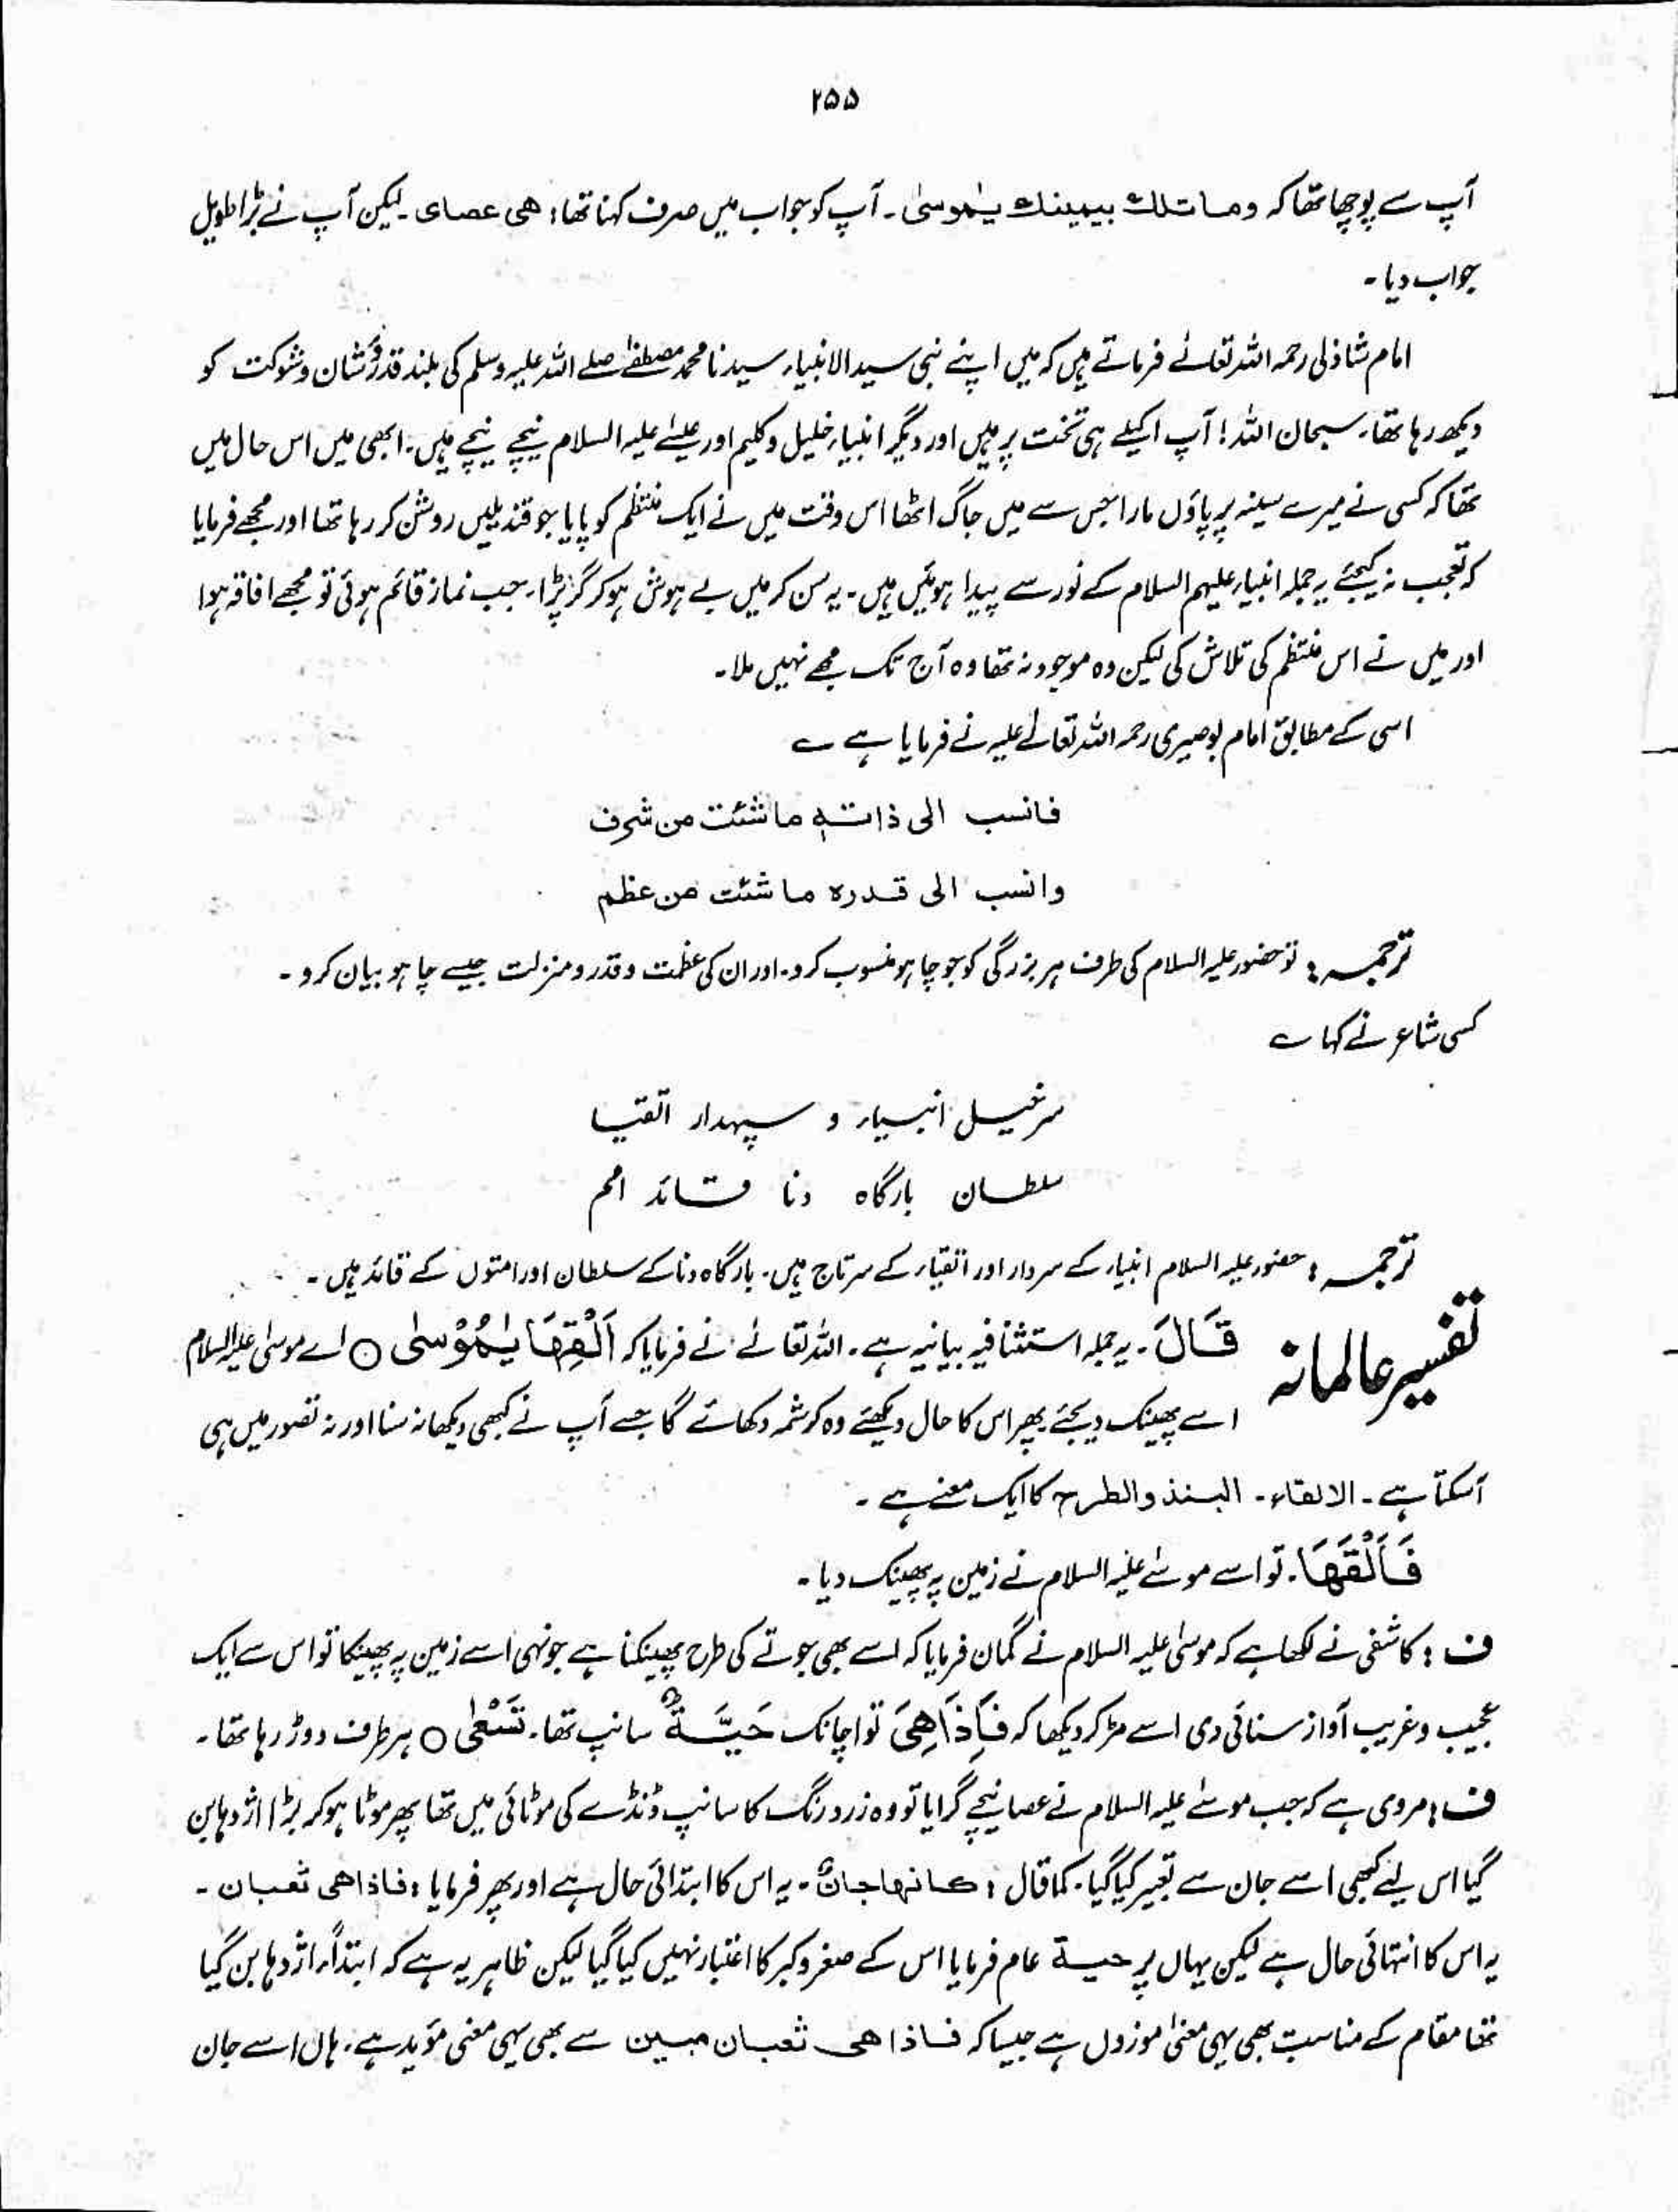 ۲۵۵
آپ سے پوچھا تھا کہ وما تلك بيمينك يٰموسىٰ ۔ آپ کو جواب میں صرف کہنا تھا : هى عصاى ۔ لیکن آپ نے بڑا طویل
جواب دیا ۔
امام شاذلی رحمہ اللہ تعالےٰ فرماتے ہیں کہ میں اپنے نبی سید الانبیاء سیدنا محمد مصطفےٰ صلے اللہ علیہ وسلم کی بلند قدر و شان و شوکت کو
دیکھ رہا تھا ۔ سبحان اللہ ! آپ اکیلے ہی تخت پر ہیں اور دیگر انبیاء خلیل و کلیم اور عیسےٰ علیہ السلام نیچے نیچے ہیں ۔ ابھی میں اس حال میں
تھا کہ کسی نے میرے سینہ پر پاؤں مارا جس سے میں جاگ اٹھا اس وقت میں نے ایک منتظم کو پایا جو قندیلیں روشن کر رہا تھا اور مجھے فرمایا
کہ تعجب نہ کیجئے یہ جملہ انبیاء علیہم السلام کے نور سے پیدا ہوئیں ہیں ۔ یہ سن کر میں بے ہوش ہو کر گر پڑا ۔ جب نماز قائم ہوئی تو مجھے افاقہ ہوا
اور میں نے اس منتظم کی تلاش کی لیکن وہ موجود نہ تھا وہ آج تک مجھے نہیں ملا ۔
اسی کے مطابق امام بوصیری رحمہ اللہ تعالےٰ علیہ نے فرمایا ہے ؎
فانسب الى ذاته ما شئت من شرف
وانسب الى قدره ما شئت من عظم
ترجمہ : تو حضور علیہ السلام کی طرف ہر بزرگی کو جو چاہو منسوب کرو ۔ اور ان کی عظمت و قدر و منزلت جیسے چاہو بیان کرو ۔
کسی شاعر نے کہا ؎
سرخیل انبیاء و سپہدار اتقیا
سلطان بارگاہ دنا قائد امم
ترجمہ : حضور علیہ السلام انبیاء کے سردار اور اتقیاء کے سرتاج ہیں ۔ بارگاہ دنا کے سلطان اور امتوں کے قائد ہیں ۔
تفسیر عالمانہ قَالَ ۔ یہ جملہ استئنافیہ بیانیہ ہے ۔ اللہ تعالےٰ نے فرمایا کہ اَلْقِهَا يٰمُوْسٰى ○ اے موسیٰ علیہ السلام
اسے پھینک دیجئے پھر اس کا حال دیکھئے وہ کرشمہ دکھائے گا جسے آپ نے کبھی دیکھا نہ سنا اور نہ تصور میں ہی
آسکتا ہے ۔ الالقاء ۔ النبذ والطرح کا ایک معنے ہے ۔
فَاَلْقٰهَا ۔ تو اسے موسےٰ علیہ السلام نے زمین پہ پھینک دیا ۔
ف : کاشفی نے لکھا ہے کہ موسیٰ علیہ السلام نے گمان فرمایا کہ اسے بھی جوتے کی طرح پھینکنا ہے جونہی اسے زمین پہ پھینکا تو اس سے ایک
عجیب و غریب آواز سنائی دی اسے مڑ کر دیکھا کہ فَاِذَا هِىَ تو اچانک حَيَّةٌ سانپ تھا ۔ تَسْعٰى ○ ہر طرف دوڑ رہا تھا ۔
ف : مروی ہے کہ جب موسےٰ علیہ السلام نے عصا نیچے گرایا تو وہ زرد رنگ کا سانپ ڈنڈے کی موٹائی میں تھا پھر موٹا ہو کر بڑا اژدہا بن
گیا اس لیے کبھی اسے جان سے تعبیر کیا گیا ۔ کما قال : كانها جانٌ ۔ یہ اس کا ابتدائی حال ہے اور پھر فرمایا : فاذا هى ثعبان ۔
یہ اس کا انتہائی حال ہے لیکن یہاں پر حية عام فرمایا اس کے صغر و کبر کا اعتبار نہیں کیا گیا لیکن ظاہر یہ ہے کہ ابتداً اژدہا بن گیا
تھا مقام کے مناسب بھی یہی معنیٰ موزوں ہے جیسا کہ فاذا هى ثعبان مبين سے بھی یہی معنی مؤید ہے ۔ ہاں اسے جان